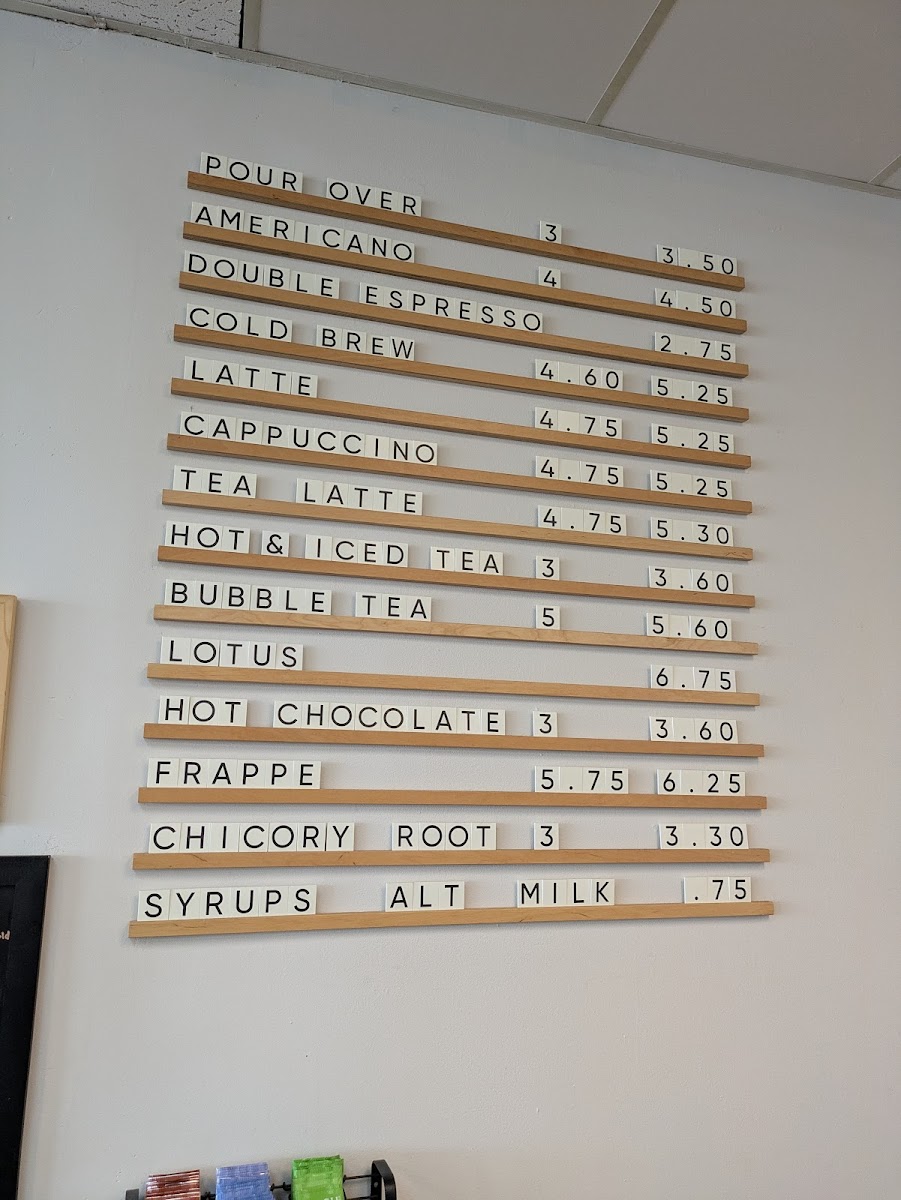 POUR OVER 3 3.50
AMERICANO 4 4.50
DOUBLE ESPRESSO 2.75
COLD BREW 4.60 5.25
LATTE 4.75 5.25
CAPPUCCINO 4.75 5.25
TEA LATTE 4.75 5.30
HOT & ICED TEA 3 3.60
BUBBLE TEA 5 5.60
LOTUS 6.75
HOT CHOCOLATE 3 3.60
FRAPPE 5.75 6.25
CHICORY ROOT 3 3.30
SYRUPS ALT MILK .75